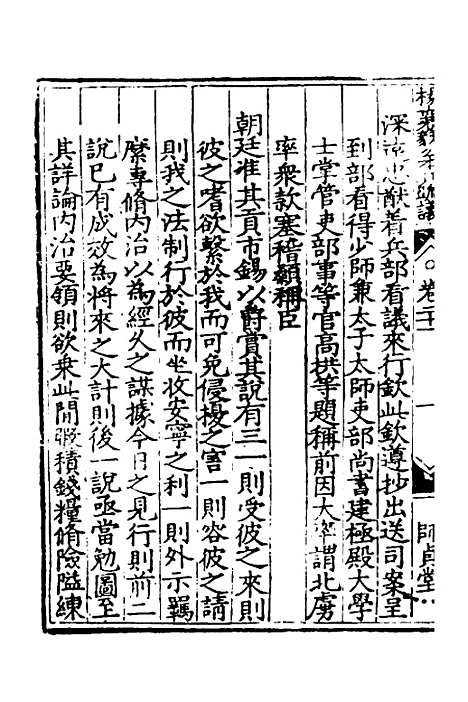 楊襄毅公本兵疏議　卷二十一　一　師貞堂
深遠忠猷着兵部看議來行欽此欽遵抄出送司案呈
到部看得少師兼太子太師吏部尚書建極殿大學
士掌管吏部事等官高拱等題稱前因大率謂北虜
率衆款塞稽顙稱臣
朝廷准其貢市錫以爵賞其說有三一則受彼之來則
彼之嗜欲繫於我而可免侵擾之害一則容彼之請
則我之法制行於彼而坐收安寧之利一則外示羈
縻專脩內治以為經久之謀據今日之見行則前二
說已有成效為將來之大計則後一說亟當勉圖至
其詳論內治要領則欲乘此閒暇積錢糧脩險隘練